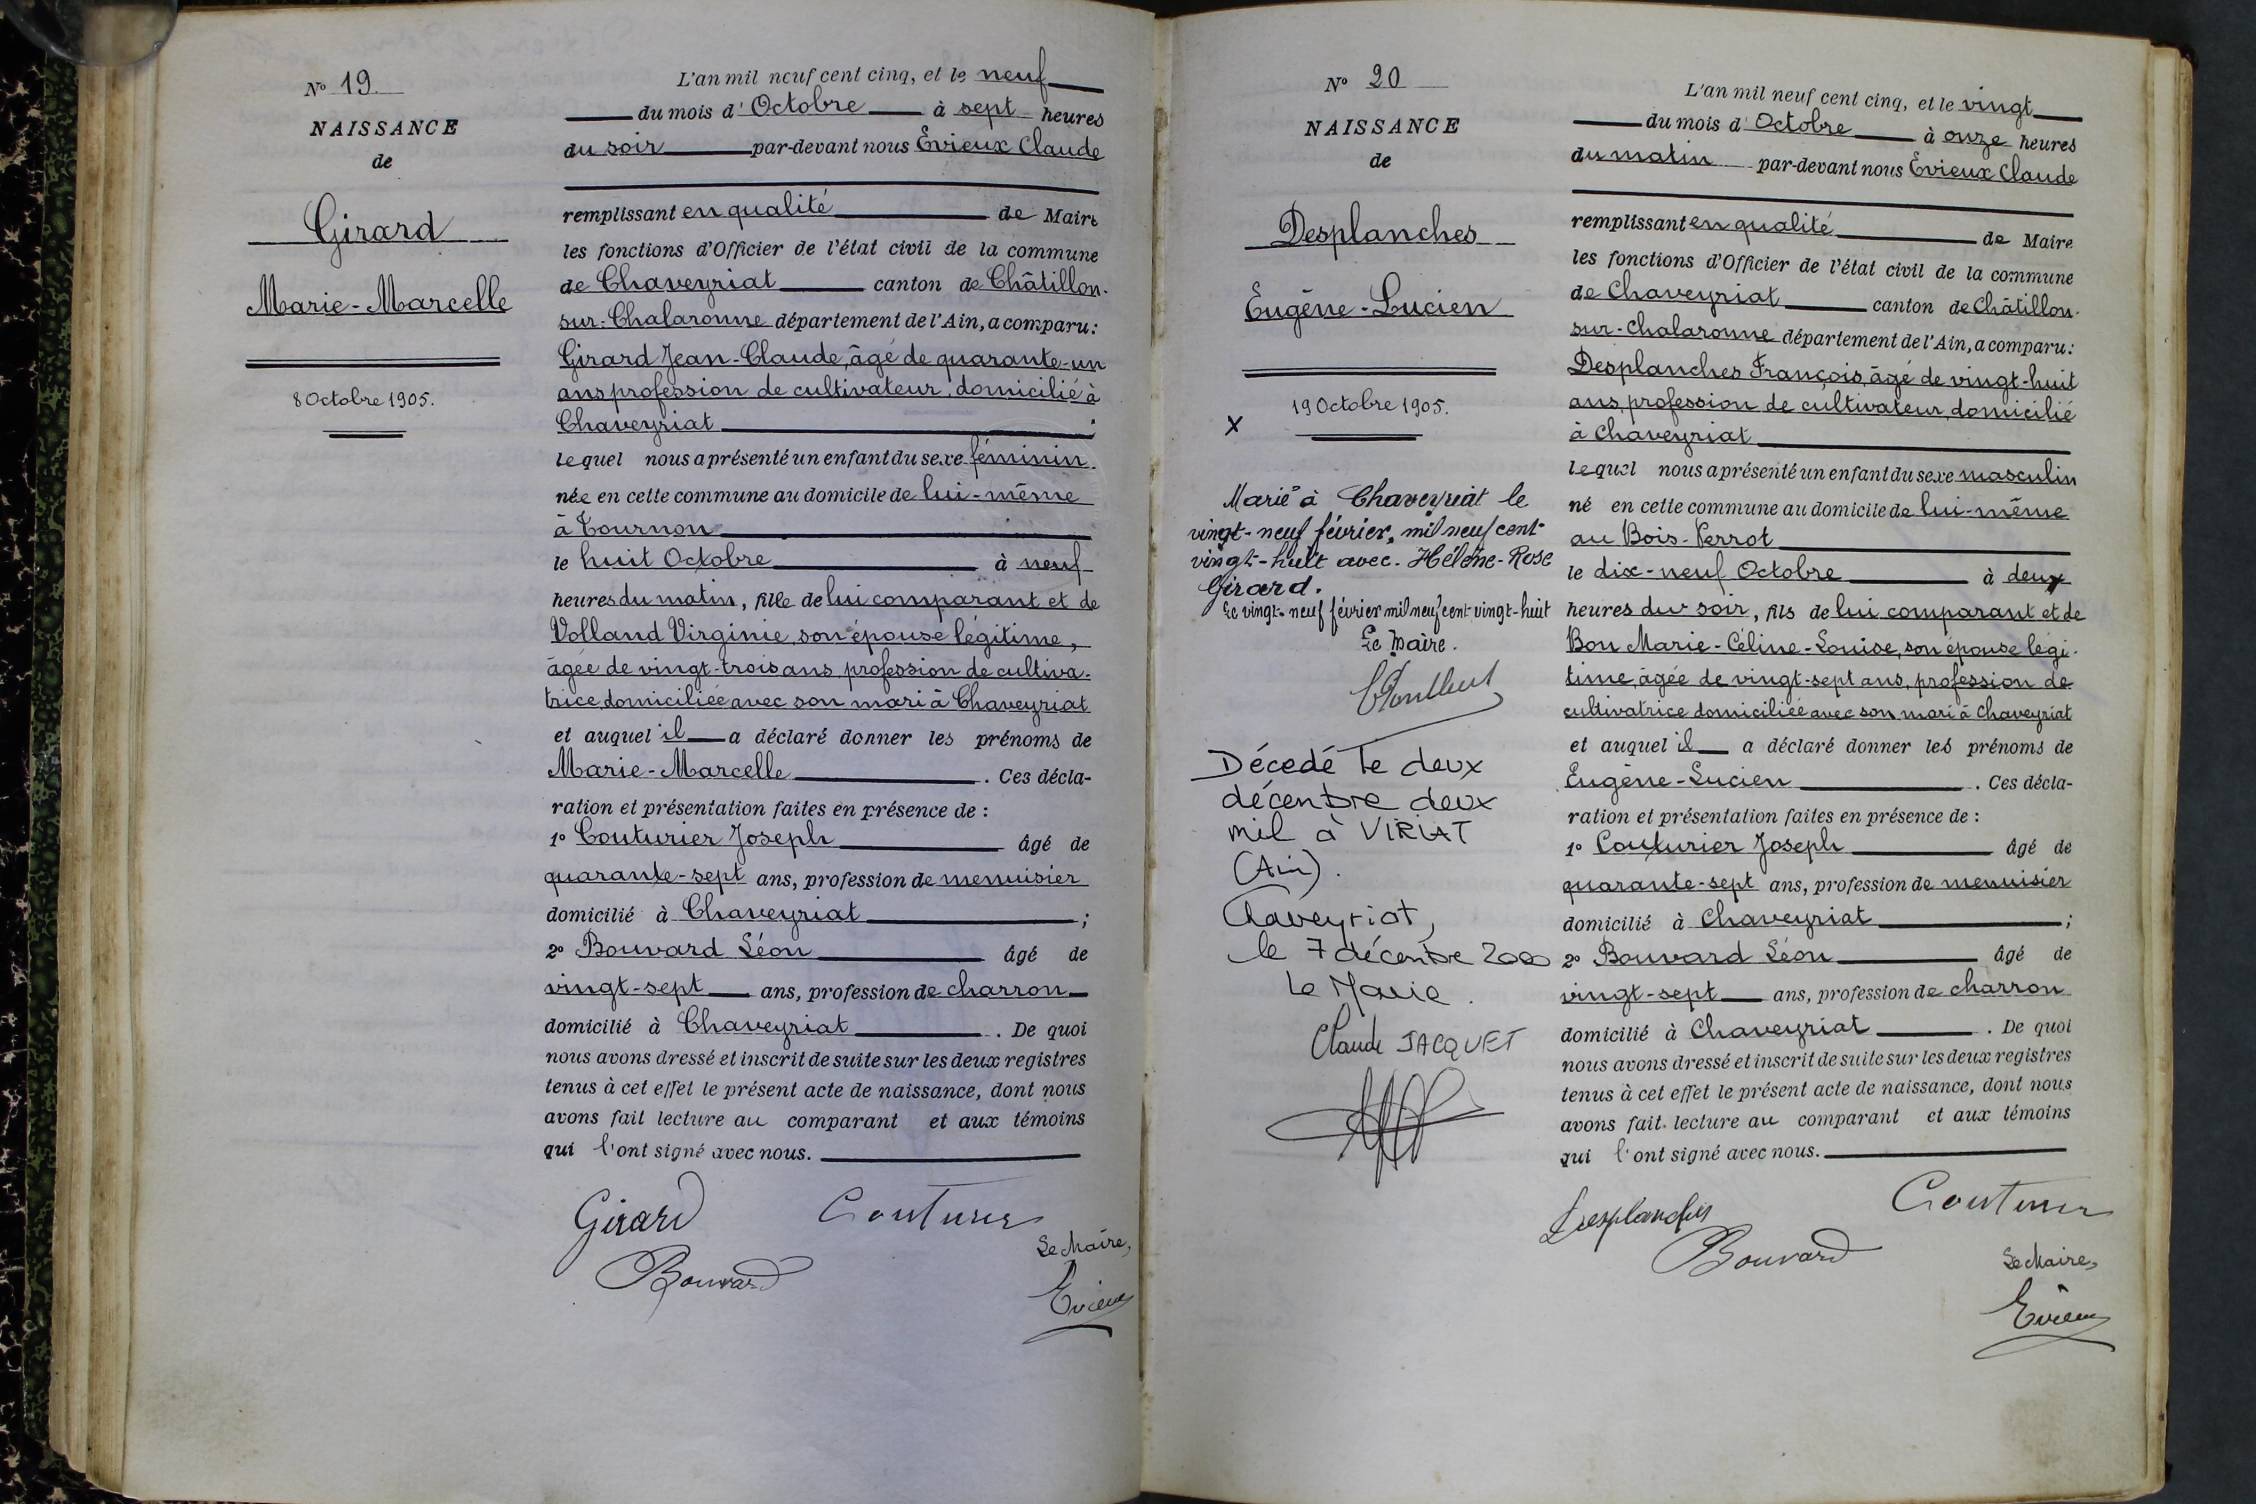 Nº 19
NAISSANCE
de
Girard
Marie-Marcelle
8 Octobre 1905.
L'an mil neuf cent cinq, et le neuf
du mois d'Octobre à sept heures
du soir par-devant nous Evieux Claude
remplissant en qualité de Maire
les fonctions d'Officier de l'état civil de la commune
de Chaveyriat canton de Châtillon-
sur-Chalaronne département de l'Ain, a comparu:
Girard Jean-Claude, âgé de quarante-un
ans profession de cultivateur, domicilié à
Chaveyriat ;
lequel nous a présenté un enfant du sexe féminin.
née en cette commune au domicile de lui-même
à Tournon
le huit Octobre à neuf
heures du matin, fille de lui comparant et de
Volland Virginie, son épouse légitime,
âgée de vingt-trois ans, profession de cultiva-
trice, domiciliée avec son mari à Chaveyriat
et auquel il a déclaré donner les prénoms de
Marie-Marcelle . Ces décla-
ration et présentation faites en présence de :
1º Couturier Joseph âgé de
quarante-sept ans, profession de menuisier
domicilié à Chaveyriat ;
2º Bouvard Léon âgé de
vingt-sept ans, profession de charron
domicilié à Chaveyriat . De quoi
nous avons dressé et inscrit de suite sur les deux registres
tenus à cet effet le présent acte de naissance, dont nous
avons fait lecture au comparant et aux témoins
qui l'ont signé avec nous.
Girard Couturier
Bouvard
Le Maire,
Evieux
Nº 20
NAISSANCE
de
Desplanches
Eugène-Lucien
19 Octobre 1905.
X
Marié à Chaveyriat le
vingt-neuf février, mil neuf cent
vingt-huit avec. Hélène-Rose
Girard.
Le vingt-neuf février mil neuf cent vingt-huit
Le Maire.
Décédé le deux
décembre deux
mil à VIRIAT
(Ain).
Chaveyriat,
le 7 décembre 2000
Le Maire.
Claude JACQUET
L'an mil neuf cent cinq, et le vingt
du mois d'Octobre à onze heures
du matin par-devant nous Evieux Claude
remplissant en qualité de Maire
les fonctions d'Officier de l'état civil de la commune
de Chaveyriat canton de Châtillon-
sur-Chalaronne département de l'Ain, a comparu:
Desplanches François, âgé de vingt-huit
ans, profession de cultivateur, domicilié
à Chaveyriat
lequel nous a présenté un enfant du sexe masculin
né en cette commune au domicile de lui-même
au Bois-Perrot
le dix-neuf Octobre à deux
heures du soir, fils de lui comparant et de
Bon Marie-Céline-Louise, son épouse légi-
time, âgée de vingt-sept ans, profession de
cultivatrice domiciliée avec son mari à Chaveyriat
et auquel il a déclaré donner les prénoms de
Eugène-Lucien . Ces décla-
ration et présentation faites en présence de :
1º Couturier Joseph âgé de
quarante-sept ans, profession de menuisier
domicilié à Chaveyriat ;
2º Bouvard Léon âgé de
vingt-sept ans, profession de charron
domicilié à Chaveyriat . De quoi
nous avons dressé et inscrit de suite sur les deux registres
tenus à cet effet le présent acte de naissance, dont nous
avons fait lecture au comparant et aux témoins
qui l'ont signé avec nous.
Desplanches Couturier
Bouvard
Le Maire,
Evieux